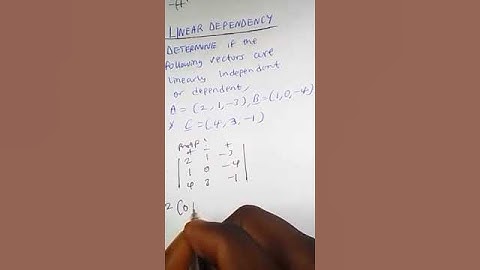 LINEAR DEPENDENCY
DETERMINE if the
following vectors are
linearly independent
or dependent,
A = (2, 1, -2), B = (1, 0, -4)
C = (4, 3, -1)
+ - +
2 1 -2
1 0 -4
4 3 -1
2 (0